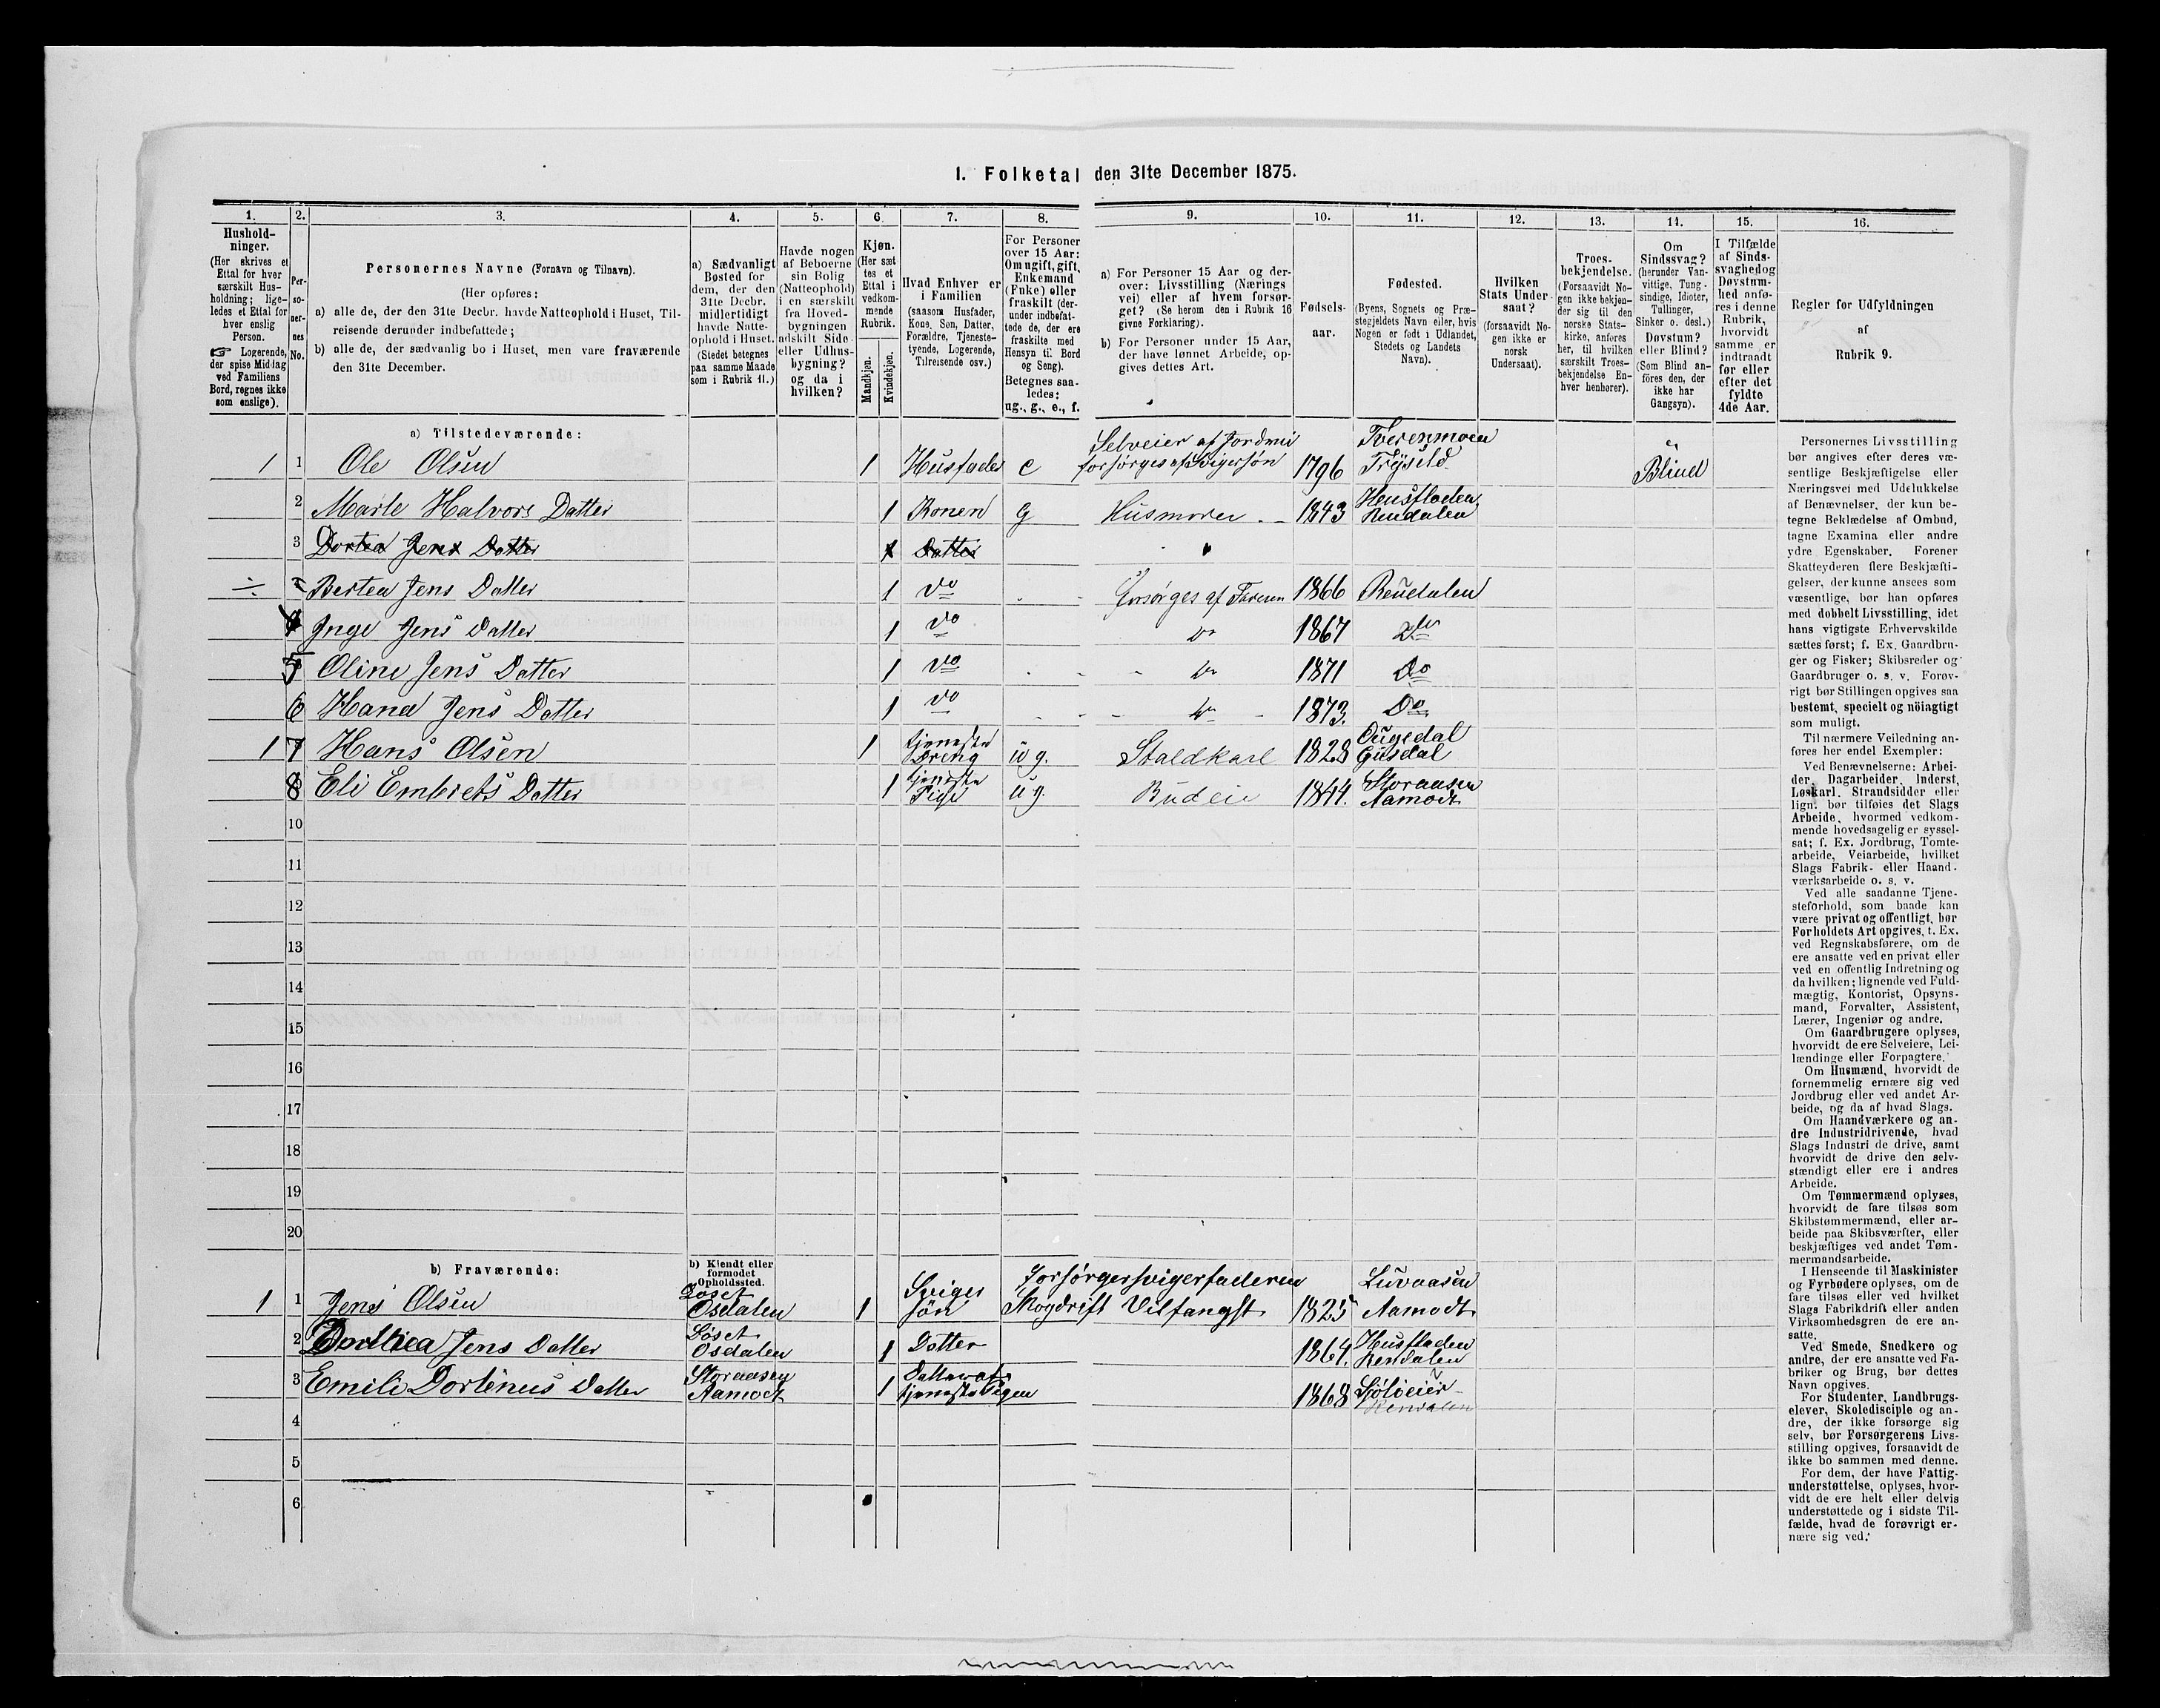 I. Folketal den 31te December 1875.
1. 2. 3. 4. 5. 6. 7. 8. 9. 10. 11. 12. 13. 14. 15. 16.
Hushold-
ninger.
(Her skrives et
Ettal for hver
særskilt Hus-
holdning; lige-
ledes et Ettal for
hver enslig
Person.
☞ Logerende,
der spise Middag
ved Familiens
Bord, regnes ikke
som enslige).
Per-
so-
ner-
nes
No.
Personernes Navne (Fornavn og Tilnavn).
(Her opføres:
a) alle de, der den 31te Decbr. havde Natteophold i Huset, Til-
reisende derunder indbefattede;
b) alle de, der sædvanlig bo i Huset, men vare fraværende
den 31te December.
a) Sædvanligt
Bosted for
dem, der den
31te Decbr.
midlertidigt
havde Natte-
ophold i Huset.
(Stedet betegnes
paa samme Maade
som i Rubrik 11.)
Havde nogen
af Beboerne
sin Bolig
(Natteophold)
i en særskilt
fra Hoved-
bygningen
adskilt Side-
eller Udhus-
bygning?
og da i
hvilken?
Kjøn.
(Her sæt
tes et
Ettal i
vedkom-
mende
Rubrik.
Mandkjøn.
Kvindekjøn.
Hvad Enhver er
i Familien
(saasom Husfader,
Kone, Søn, Datter,
Forældre, Tjeneste-
tyende, Logerende,
Tilreisende osv.)
For Personer
over 15 Aar:
Om ugift, gift,
Enkemand
(Enke) eller
fraskilt (der-
under indbefat-
tede de, der ere
fraskilte med
Hensyn til Bord
og Seng).
Betegnes saa-
ledes:
ug., g., e., f.
a) For Personer 15 Aar og der-
over: Livsstilling (Nærings
vei) eller af hvem forsør-
get? (Se herom den i Rubrik 16
givne Forklaring).
b) For Personer under 15 Aar,
der have lønnet Arbeide, op-
gives dettes Art.
Fødsels-
aar.
Fødested.
(Byens, Sognets og Præ-
stegjeldets Navn eller, hvis
Nogen er født i Udlandet,
Stedets og Landets
Navn).
Hvilken
Stats Under-
saat?
(forsaavidt No-
gen ikke er
norsk
Undersaat).
Troes-
bekjendelse.
(Forsaavidt No-
gen ikke bekjen-
der sig til den
norske Stats-
kirke, anføres
her, til hvilken
særskilt Troes-
bekjendelse En-
hver henhører).
Om
Sindssvag?
(herunder Van-
vittige, Tung-
sindige, Idioter,
Tullinger,
Sinker o. desl.)
Døvstum?
eller Blind?
(Som Blind an-
føres den, der
ikke har
Gangsyn).
I Tilfælde
af Sinds-
svaghed og
Døvstum-
hed anfø-
res i denne
Rubrik,
hvorvidt
samme er
indtraadt
før eller
efter det
fyldte
4de Aar.
Regler for Udfyldningen
af
Rubrik 9.
a) Tilstedeværende:
1 1 Ole Olsen 1 Husfader e Selveier af Jordmi forsørges af Svigersøn 1796 Tverenmoen Trysild Blind
2 Marte Halvors Datter 1 Konen g Husmoder 1843 Husfloden Rendalen
3 Dortea Jens Datter 1 Datter
Bertea Jens Datter 1 do Forsørges af Faderen 1866 Rendalen
4 Inge Jens Datter 1 do do 1867 do
5 Oline Jens Datter 1 do do 1871 Do
6 Hana Jens Datter 1 do do 1873. Do
1 7 Hans Olsen 1 tjeneste Dreng ug. Staldkarl 1828 Gusdal
8 Eli Embrets Datter 1 tjeneste Pige ug. Budeie 1844. Storaasen Aamodt
10
11
12
13
14
15
16
17
18
19
20
b) Fraværende:
b) Kjendt eller
formodet
Opholdssted.
1 1 Jens Olsen Løset Osdalen 1 Sviger søn Forsørger svigerfaderen Skogdrift Vilfangst 1825 Luvaasen Aamodt
2 Dorthea Jens Datter Løset Osdalen 1 Dotter 1864. Husfloden Rendalen
3 Emili Dortinus Datter Storaasen Aamodt 1 1868 Rendalen
4
5
6
Personernes Livsstilling
bør angives efter deres væ-
sentlige Beskjæftigelse eller
Næringsvei med Udelukkelse
af Benævnelser, der kun be-
tegne Beklædelse af Ombud,
tagne Examina eller andre
ydre Egenskaber. Forener
Skatteyderen flere Beskjæfti-
gelser, der kunne ansees som
væsentlige, bør han opføres
med dobbelt Livsstilling, idet
hans vigtigste Erhvervskilde
sættes først; f. Ex. Gaardbru-
ger og Fisker; Skibsreder og
Gaardbruger o. s. v. Forøv-
rigt bør Stillingen opgives saa
bestemt, specielt og nöiagtigt
som muligt.
Til nærmere Veiledning an-
føres her endel Exempler:
Ved Benævnelserne: Arbei-
der, Dagarbeider, Inderst,
Løskarl, Strandsidder eller
lign. bør tilføies det Slags
Arbeide, hvormed vedkom-
mende hovedsagelig er syssel-
sat; f. Ex. Jordbrug, Tomte-
arbeide, Veiarbeide, hvilket
Slags Fabrik- eller Haand-
værksarbeide o. s. v.
Ved alle saadanne Tjene-
steforhold, som baade kan
være privat og offentligt, bør
Forholdets Art opgives, t. Ex.
ved Regnskabsførere, om de
ere ansatte ved en privat eller
ved en offentlig Indretning og
da hvilken; lignende ved Fuld-
mægtig, Kontorist, Opsyns-
mand, Forvalter, Assistent,
Lærer, Ingeniør og andre.
Om Gaardbrugere oplyses,
hvorvidt de ere Selveiere, Lei-
lændinge eller Forpagtere.
Om Husmænd, hvorvidt de
fornemmelig ernære sig ved
Jordbrug eller ved andet Ar-
beide, og da af hvad Slags.
Om Haandværkere og an-
dre Industridrivende, hvad
Slags Industri de drive, samt
hvorvidt de drive den selv-
stændigt eller ere i andres
Arbeide.
Om Tømmermænd oplyses,
hvorvidt de fare tilsøs som
Skibstømmermænd, eller ar-
beide paa Skibsværfter, eller
beskjæftiges ved andet Tøm-
mermandsarbeide.
I Henseende til Maskinister
og Fyrbødere oplyses, om de
fare tilsøs eller ved hvilket
Slags Fabrikdrift eller anden
Virksomhedsgren de ere an-
satte.
Ved Smede, Snedkere og
andre, der ere ansatte ved Fa-
briker og Brug, bør dettes
Navn opgives.
For Studenter, Landbrugs-
elever, Skoledisciple og an-
dre, der ikke forsørge sig
selv, bør Forsørgerens Livs-
stilling opgives, forsaavidt de
ikke bo sammen med denne.
For dem, der have Fattig-
understøttelse, oplyses, hvor-
vidt de ere helt eller delvis
understøttede og i sidste Til-
fælde, hvad de forøvrigt er-
nære sig ved.